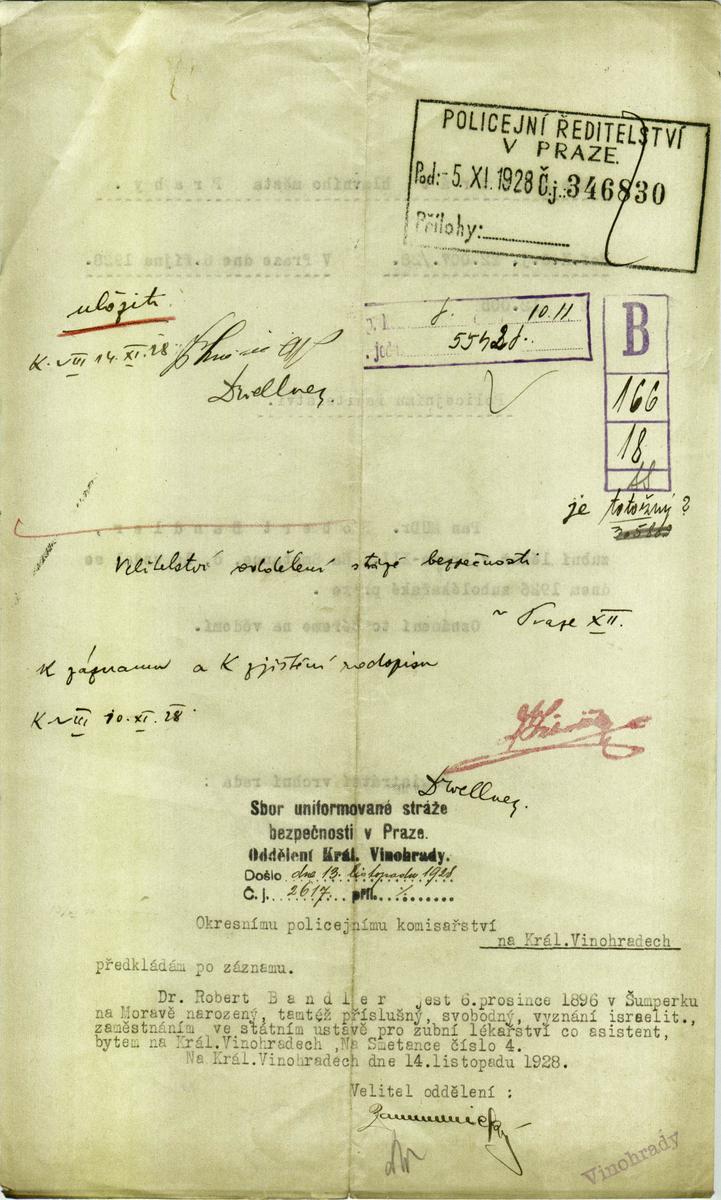 POLICEJNÍ ŘEDITELSTVÍ
V PRAZE.
Pod: - 5. XI. 1928 Č.j.: 346830
Přílohy:
uložiti
K. VIII 14. XI. 28
Dr Wellner
č. 10.11
5542
B
166
18
je totožný?
Velitelství oddělení stráže bezpečnosti
v Praze XII.
K záznamu a K zjištění rodopisu
K VIII 10. XI. 28
Dr Wellner
Sbor uniformované stráže
bezpečnosti v Praze.
Oddělení Král. Vinohrady.
Došlo dne 13. listopadu 1928
Č. j. 2617 příl. ./.
Okresnímu policejnímu komisařství
na Král.Vinohradech
předkládám po záznamu.
Dr. Robert B a n d l e r jest 6.prosince 1896 v Šumperku
na Moravě narozený, tamtéž příslušný, svobodný, vyznání israelit.,
zaměstnáním ve státním ústavě pro zubní lékařství co asistent,
bytem na Král.Vinohradech ,Na Smetance číslo 4.
Na Král.Vinohradech dne 14.listopadu 1928.
Velitel oddělení :
Vinohrady